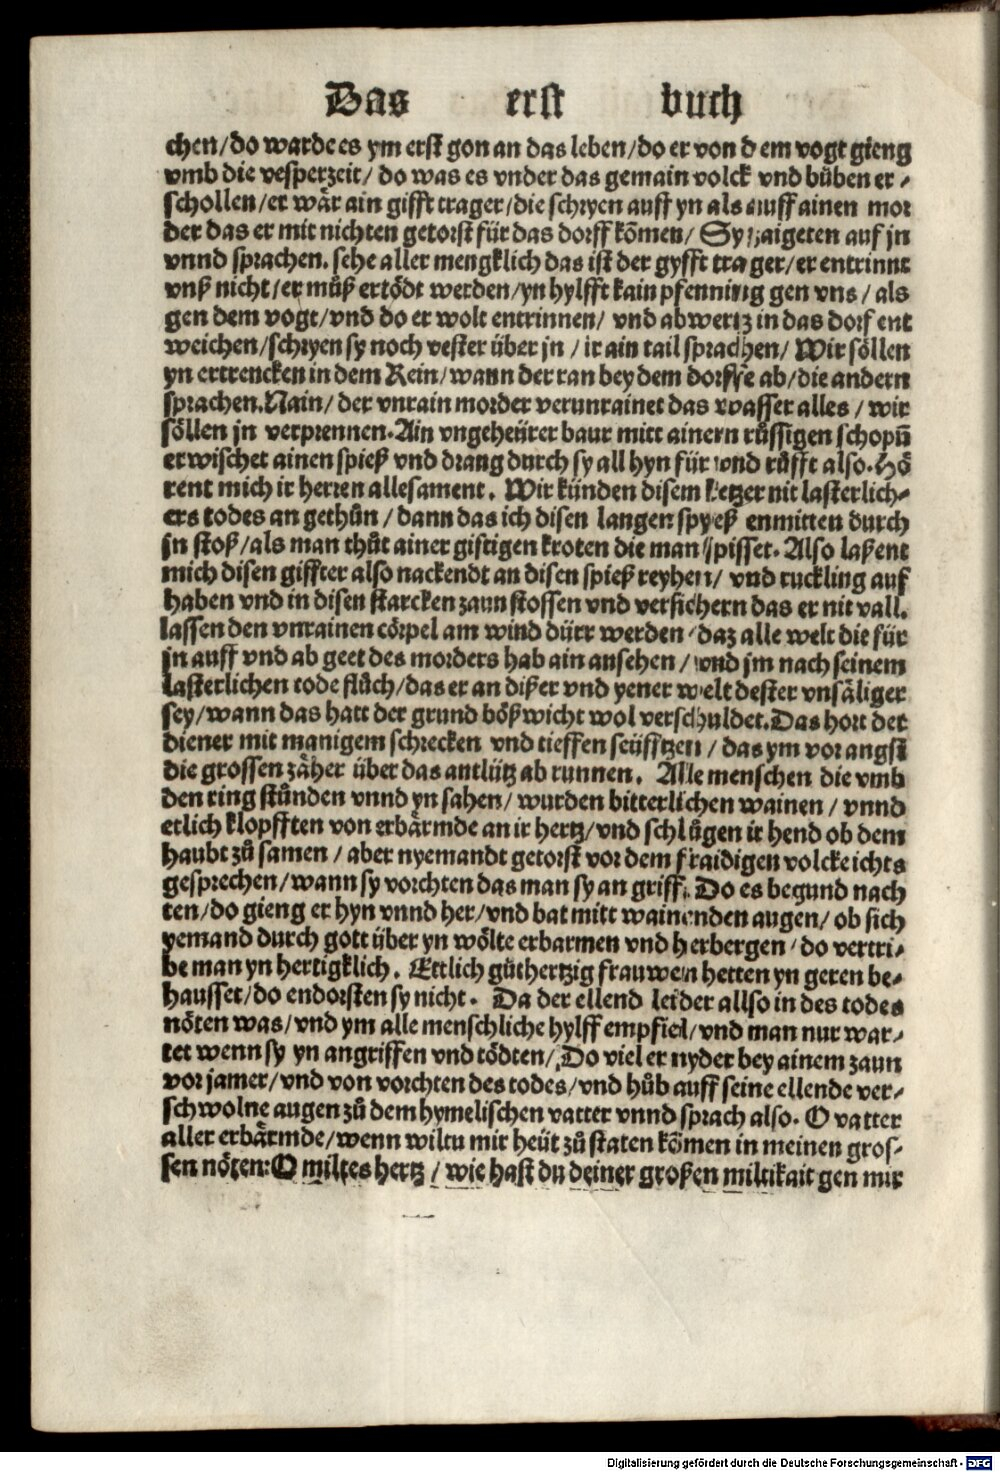 Das erst buch
chen/do warde es ym erst gon an das leben/do er von dem vogt gieng
vmb die vesperzeit/ do was es vnder das gemain volck vnd bůben er-
schollen/er wår ain gifft trager/die schryen auff yn als auff ainen mor
der das er mit nichten getorst für das dorff kõmen/ Sy zaigeten auf jn
vnnd sprachen. sehe aller mengklich das ist der gyfft trager/er entrinnt
vnß nicht/er můß ertödt werden/yn hylfft kain pfenning gen vns/ als
gen dem vogt/vnd do er wolt entrinnen/ vnd abwertz in das dorf ent
weichen/schryen sy noch vester über jn/ ir ain tail sprachen/ Wir söllen
yn ertrencken in dem Rein/wann der ran bey dem dorffe ab/die andern
sprachen.Nain/ der vnrain morder verunrainet das wasser alles/ wir
söllen jn verprennen.Ain vngeheürer baur mitt ainem růssigen schopñ
erwischet ainen spieß vnd drang durch sy all hyn für vnd růfft also.Hö
rent mich ir herren allesament. Wir künden disem ketzer nit lasterlich-
ers todes an gethůn/ dann das ich disen langen spyeß enmitten durch
jn stoß/als man thůt ainer giftigen kroten die man spisset. Also laßent
mich disen giffter also nackendt an disen spieß reyhen/ vnd ruckling auf
haben vnd in disen starcken zaun stossen vnd versichern das er nit vall.
lassen den vnrainen cörpel am wind dürr werden/daz alle welt die für
jn auff vnd ab geet des morders hab ain ansehen/ vnd jm nach seinem
lasterlichen tode flůch/das er an dißer vnd yener welt dester vnsäliger
sey/wann das hatt der grund bößwicht wol verschuldet.Das hort der
diener mit manigem schrecken vnd tieffen seüfftzen/ das ym vor angst
die grossen zäher über das antlütz ab runnen. Alle menschen die vmb
den ring stůnden vnnd yn sahen/ wurden bitterlichen wainen/ vnnd
etlich klopfften von erbärmde an ir hertz/vnd schlůgen ir hend ob dem
haubt zů samen/ aber nyemandt getorst vor dem fraidigen volcke ichts
gesprechen/wann sy vorchten das man sy an griff. Do es begund nach
ten/do gieng er hyn vnnd her/vnd bat mitt wainenden augen/ ob sich
yemand durch gott über yn wölte erbarmen vnd herbergen/do vertri-
be man yn hertigklich. Ettlich gůthertzig frauwen hetten yn geren be-
hausset/do endorsten sy nicht. Da der ellend leider allso in des todes
nöten was/vnd ym alle menschliche hylff empfiel/vnd man nur war-
tet wenn sy yn angriffen vnd tödten/ Do viel er nyder bey ainem zaun
vor jamer/vnd von vorchten des todes/vnd hůb auff seine ellende ver-
schwolne augen zů dem hymelischen vatter vnnd sprach also. O vatter
aller erbärmde/wenn wiltu mir heüt zů staten kõmen in meinen gros-
sen nöten:O miltes hertz/ wie hast du deiner großen miltikait gen mir
Digitalisierung gefördert durch die Deutsche Forschungsgemeinschaft - DFG